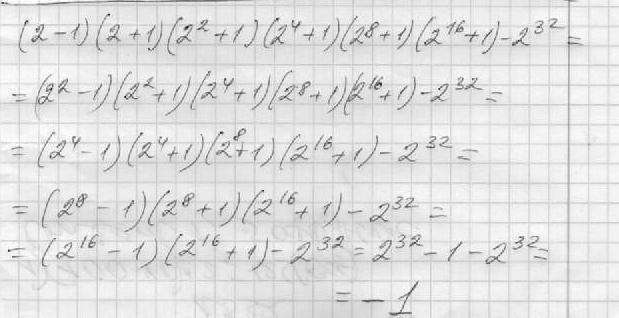 (2-1)(2+1)(2²+1)(2⁴+1)(2⁸+1)(2¹⁶+1)-2³²=
=(2²-1)(2²+1)(2⁴+1)(2⁸+1)(2¹⁶+1)-2³²=
=(2⁴-1)(2⁴+1)(2⁸+1)(2¹⁶+1)-2³²=
=(2⁸-1)(2⁸+1)(2¹⁶+1)-2³²=
=(2¹⁶-1)(2¹⁶+1)-2³²=2³²-1-2³²=
=-1